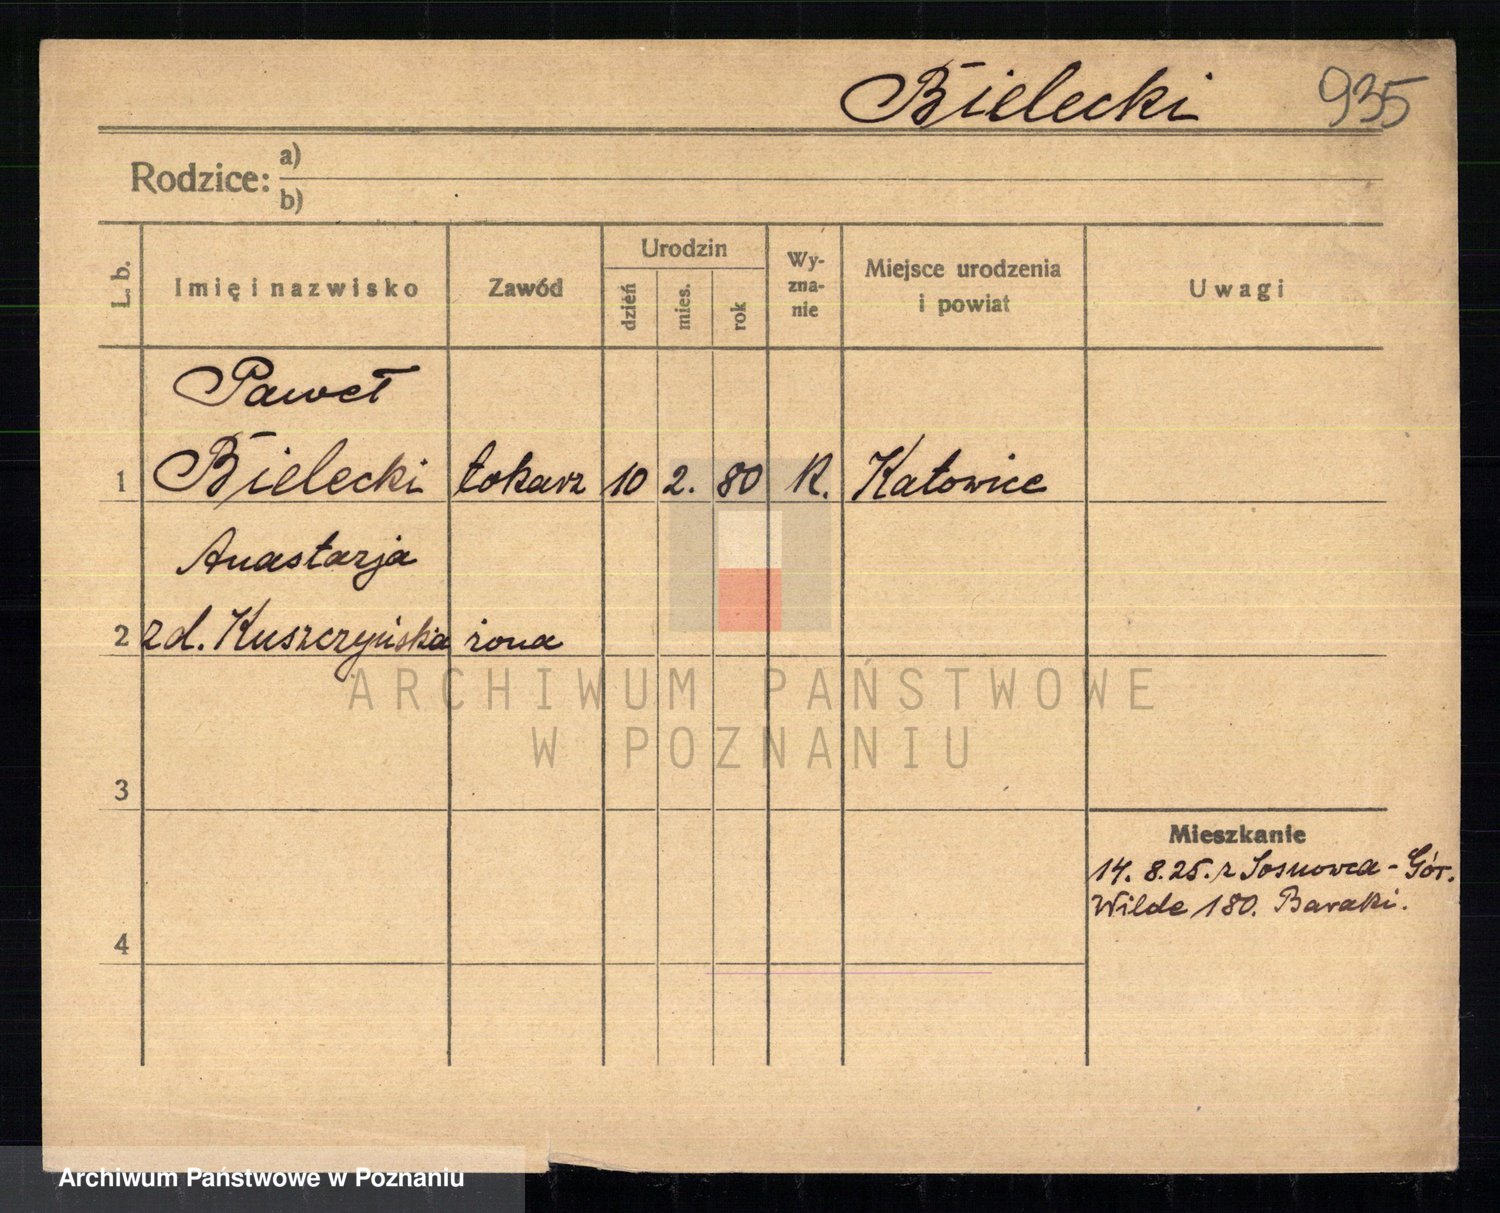 Bielecki 935
Rodzice: a)
b)
L. b. Imię i nazwisko Zawód Urodzin dzień mies. rok Wy-zna-nie Miejsce urodzenia i powiat Uwagi
Paweł
1 Bielecki tokarz 10 2. 80 R. Katowice
Anastazja
2 zd. Kuszczyńska żona
ARCHIWUM PAŃSTWOWE
W POZNANIU
3
Mieszkanie
14. 8. 25. z Sosnowca - Gór.
Wilde 180. Baraki.
4
Archiwum Państwowe w Poznaniu